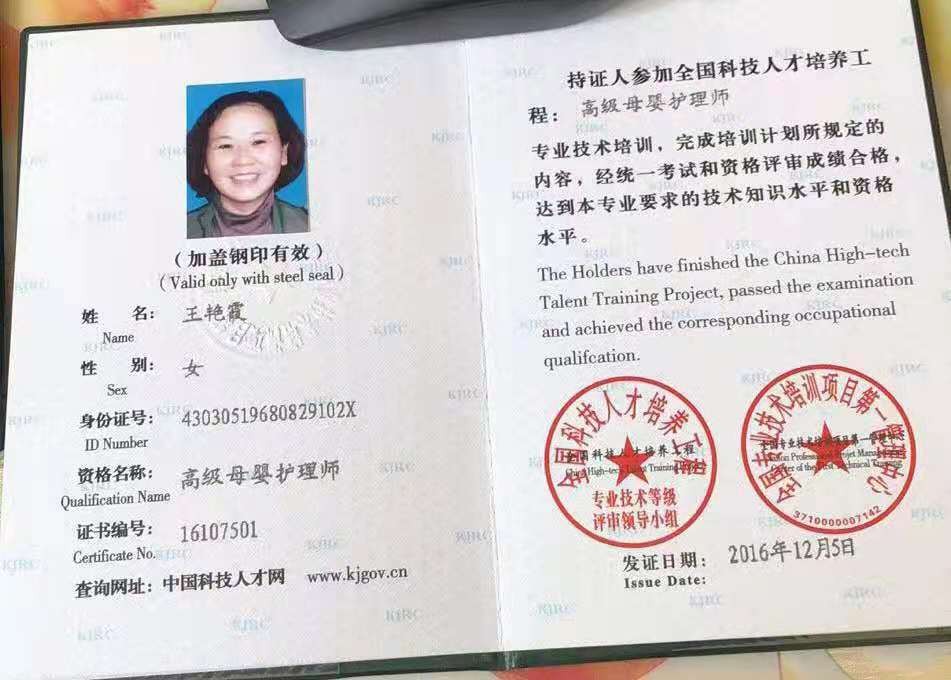 (加盖钢印有效)
(Valid only with steel seal)
姓 名: 王艳霞
Name
性 别: 女
Sex
身份证号: 43030519680829102X
ID Number
资格名称: 高级母婴护理师
Qualification Name
证书编号: 16107501
Certificate No.
查询网址: 中国科技人才网 www.kjgov.cn
持证人参加全国科技人才培养工
程: 高级母婴护理师
专业技术培训,完成培训计划所规定的
内容,经统一考试和资格评审成绩合格,
达到本专业要求的技术知识水平和资格
水平。
The Holders have finished the China High-tech
Talent Training Project, passed the examination
and achieved the corresponding occupational
qualifcation.
全国科技人才培养工程
全国科技人才培养工程
China High-tech Talent Training
专业技术等级
评审领导小组
全国专业技术培训项目第一管理中心
全国专业技术培训项目第一管理中心
3710000007142
发证日期: 2016年12月5日
Issue Date:
KJRC